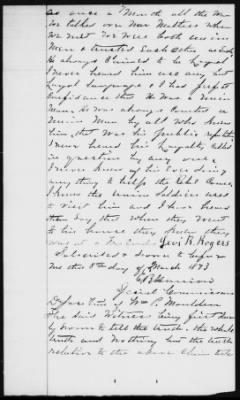 as once a Month all the War
We talked over War Matters when
we met We were both union
Men & trusted Each other
He always Claimed to be Loyal
I never heard him use any but
Loyal Language & I had perfect
Confidence that He was a Union
Man He was always trusted as
Union Man by all Who knew
him that was his public reputation
I never heard his Loyalty called
in question by any one
I never knew of his Ever doing
any thing to help the rebel Cause
I know the union soldiers used
to visit him and I have heard
them say that when they went
to his house they knew they
were at a Friends Levi R. Rogers
Subscribed & Sworn to before
me this 8th day of March 1873
Special Commissioner
Deposition of Wm P. Mauldin
The said Witness being first duly
Sworn to tell the truth the whole
truth and nothing but the truth
relative to the above Claim